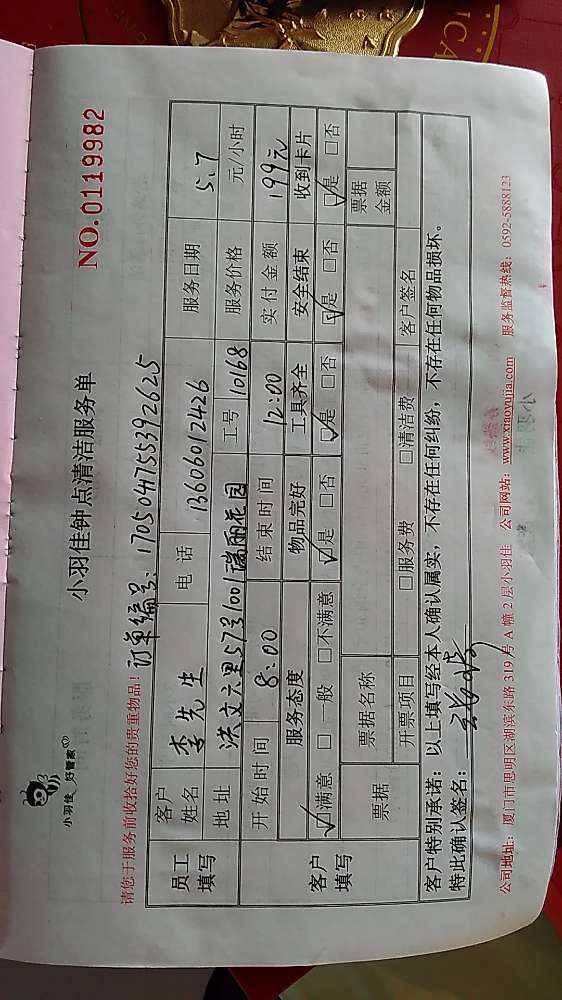 小羽佳 好管家
NO.0119982
小羽佳钟点清洁服务单
请您于服务前收拾好您的贵重物品！ 订单编号: 17050475539 2625
员工填写 客户姓名 李先生 电话 13606012426 服务日期 5.7
地址 洪文六里573 1001 瑞丽花园 工号 10168 服务价格 元/小时
客户填写 开始时间 8:00 结束时间 12:00 实付金额 199元
服务态度 物品完好 工具齐全 安全结束 收到卡片
☑满意 □一般 □不满意 ☑是 □否 ☑是 □否 ☑是 □否 ☑是 □否
票据 票据名称 票据金额
开票项目 □服务费 □清洁费 客户签名
客户特别承诺：以上填写经本人确认属实，不存在任何纠纷，不存在任何物品损坏。
特此确认签名：
公司地址：厦门市思明区湖滨东路 319 号 A 幢 2 层小羽佳 公司网站：www.xiaoyujia.com 服务监督热线：0592-5888123